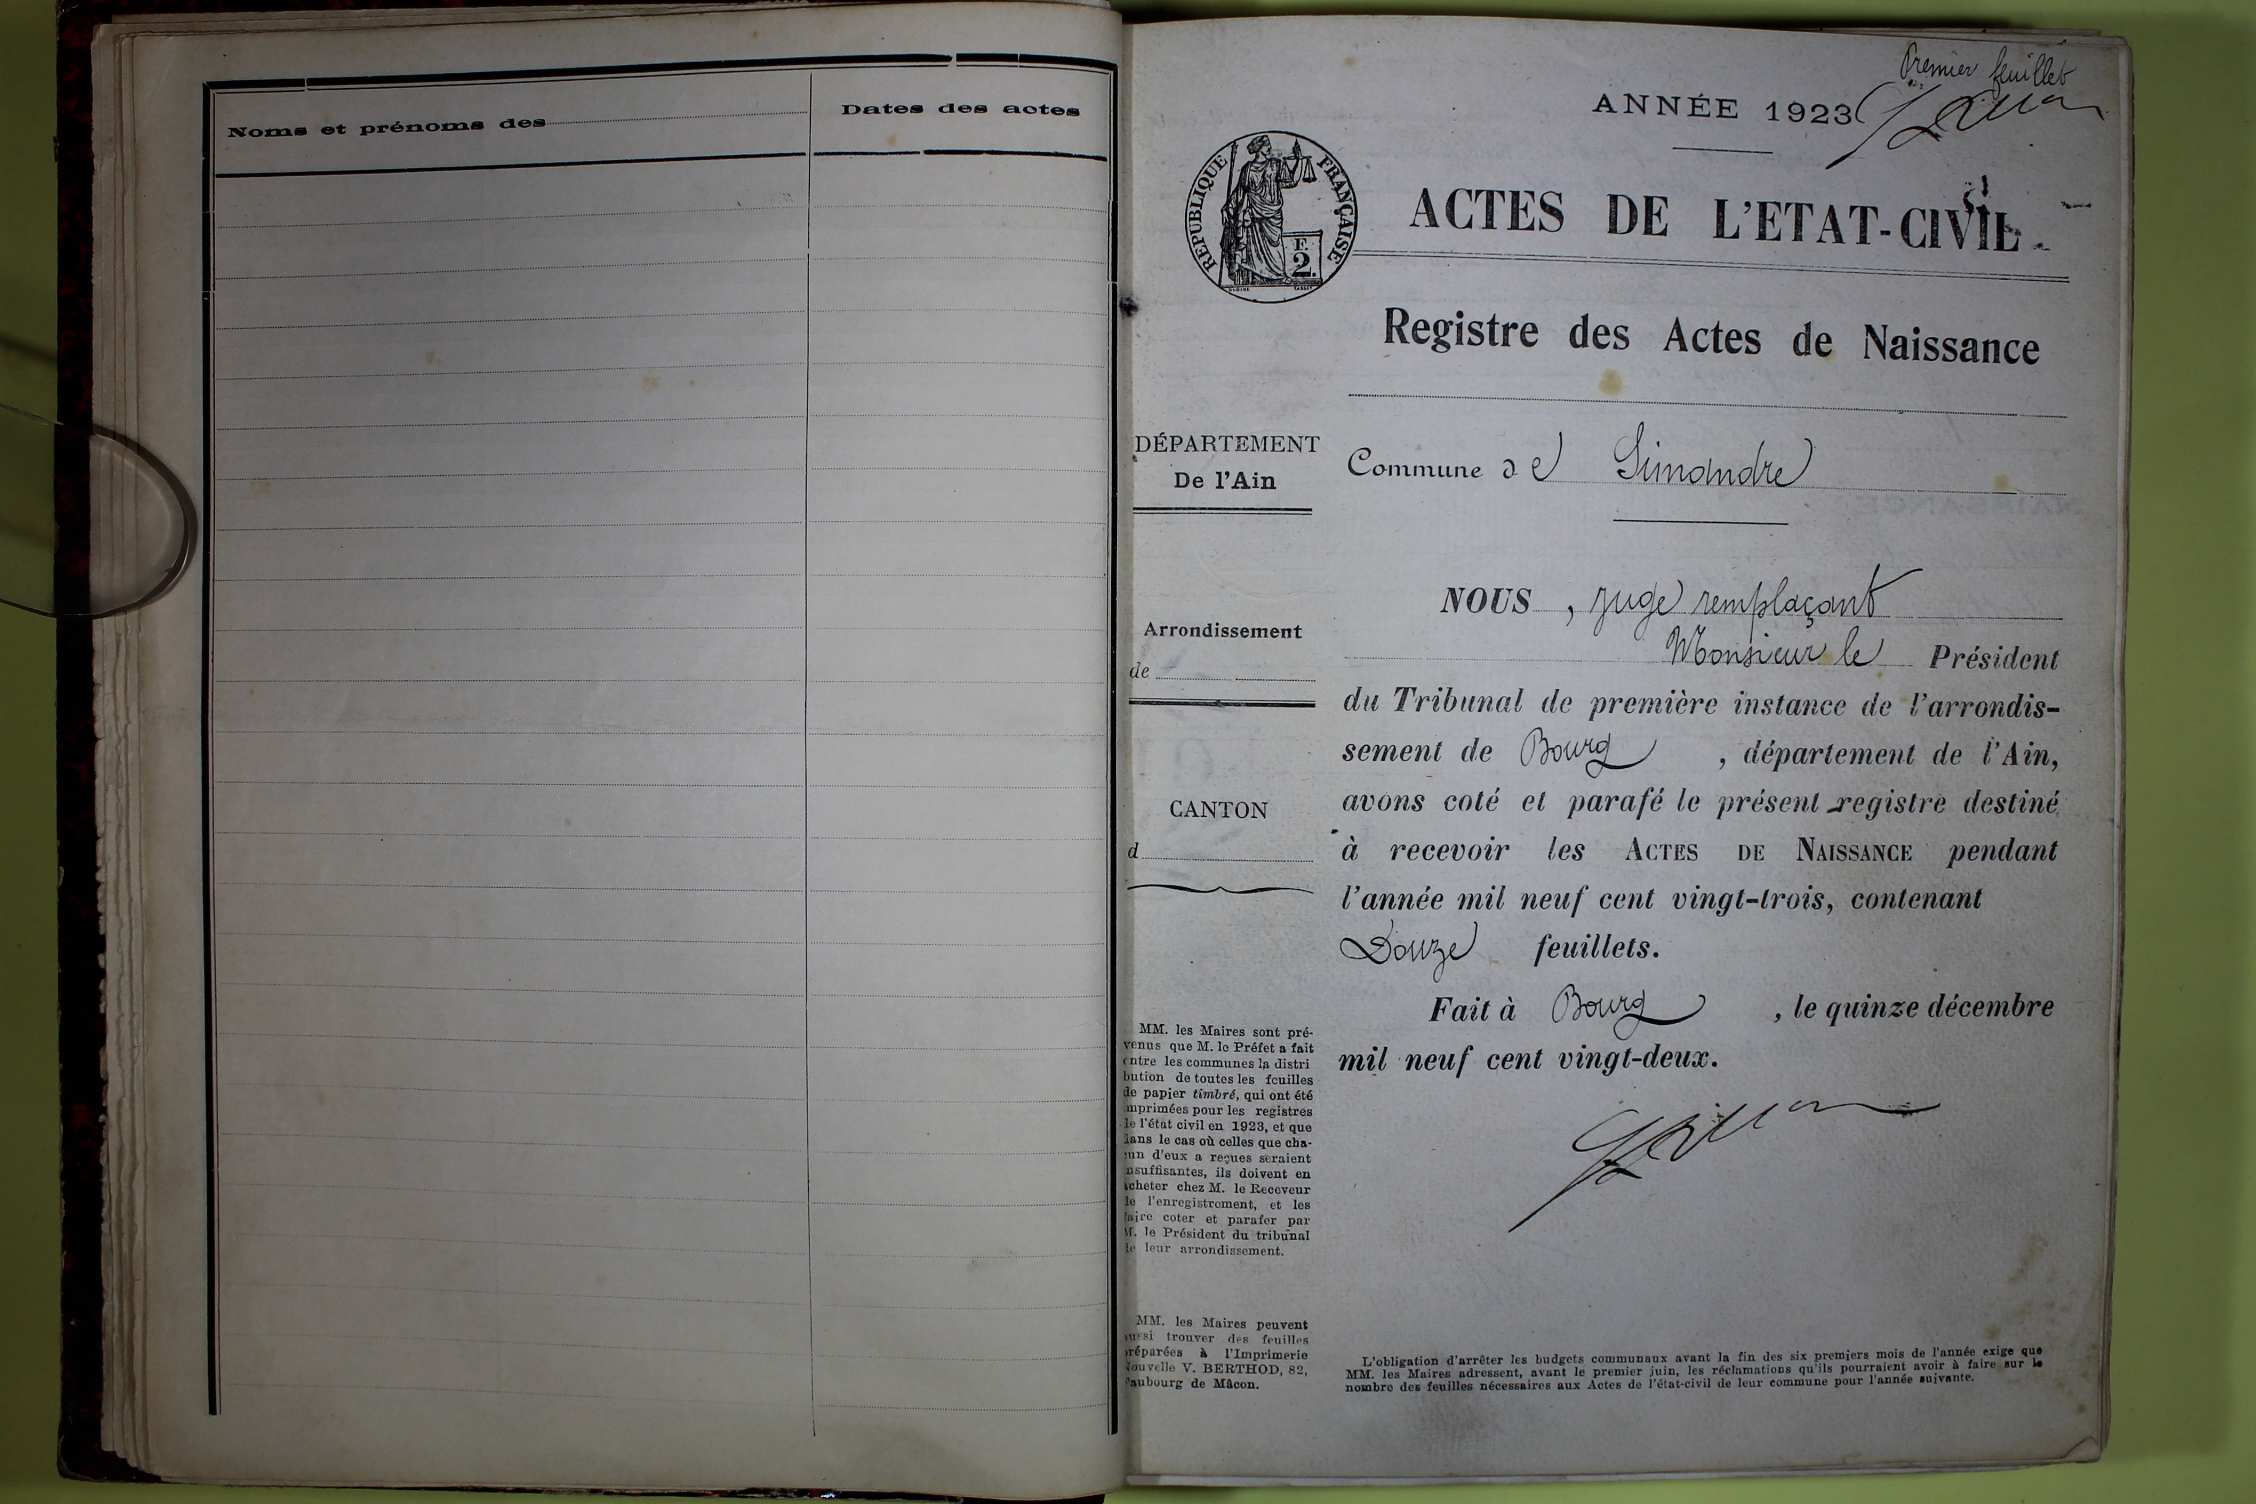 Noms et prénoms des
Dates des actes
Premier feuillet
ANNÉE 1923
RÉPUBLIQUE FRANÇAISE
F.
2.
ACTES DE L'ETAT-CIVIL
Registre des Actes de Naissance
DÉPARTEMENT
De l'Ain
Commune de Simandre
Arrondissement
de
CANTON
d
MM. les Maires sont pré-
venus que M. le Préfet a fait
entre les communes la distri
bution de toutes les feuilles
de papier timbré, qui ont été
imprimées pour les registres
de l'état civil en 1923, et que
dans le cas où celles que cha-
cun d'eux a reçues seraient
insuffisantes, ils doivent en
acheter chez M. le Receveur
de l'enregistrement, et les
faire coter et parafer par
M. le Président du tribunal
de leur arrondissement.
MM. les Maires peuvent
aussi trouver des feuilles
préparées à l'Imprimerie
Nouvelle V. BERTHOD, 82,
Faubourg de Mâcon.
NOUS , juge remplaçant
Monsieur le Président
du Tribunal de première instance de l'arrondis-
sement de Bourg , département de l'Ain,
avons coté et parafé le présent registre destiné
à recevoir les ACTES DE NAISSANCE pendant
l'année mil neuf cent vingt-trois, contenant
Douze feuillets.
Fait à Bourg , le quinze décembre
mil neuf cent vingt-deux.
L'obligation d'arrêter les budgets communaux avant la fin des six premiers mois de l'année exige que
MM. les Maires adressent, avant le premier juin, les réclamations qu'ils pourraient avoir à faire sur le
nombre des feuilles nécessaires aux Actes de l'état-civil de leur commune pour l'année suivante.